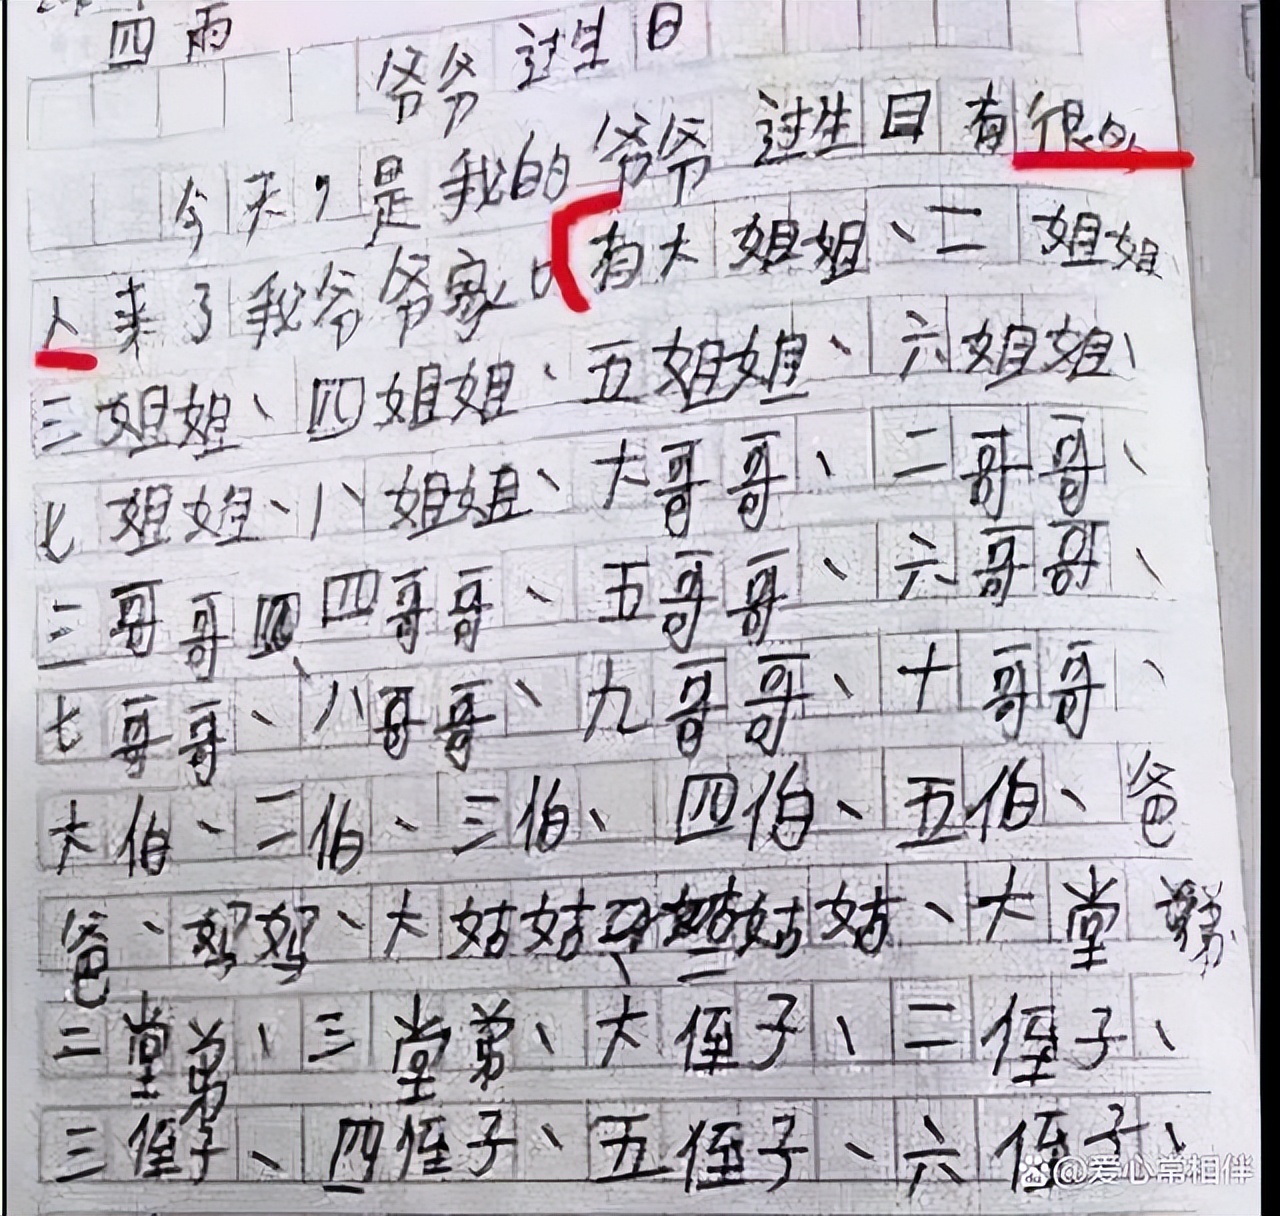 四 雨
爷爷过生日
今天，是我的爷爷过生日有很多
人来了我爷爷家。有大姐姐、二姐姐
三姐姐、四姐姐、五姐姐、六姐姐、
七姐姐、八姐姐、大哥哥、二哥哥、
三哥哥、四哥哥、五哥哥、六哥哥、
七哥哥、八哥哥、九哥哥、十哥哥、
大伯、二伯、三伯、四伯、五伯、爸
爸、妈妈、大姑姑、二姑姑、大堂弟
二堂弟、三堂弟、大侄子、二侄子、
三侄子、四侄子、五侄子、六侄子、
@爱心常相伴